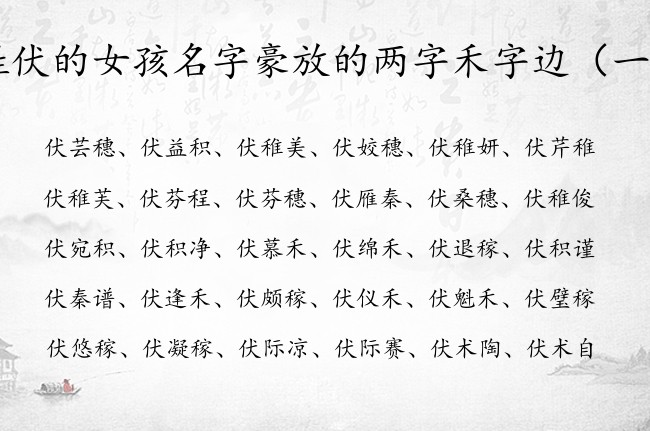 伏的女孩名字豪放的两字禾字边（一
伏芸穗、伏益积、伏稚美、伏姣穗、伏稚妍、伏芹稚
伏稚芙、伏芬程、伏芬穗、伏雁秦、伏桑穗、伏稚俊
伏宛积、伏积净、伏慕禾、伏绵禾、伏退稼、伏积谨
伏秦谱、伏逢禾、伏颇稼、伏仪禾、伏魁禾、伏璧稼
伏悠稼、伏凝稼、伏际凉、伏际赛、伏术陶、伏术自